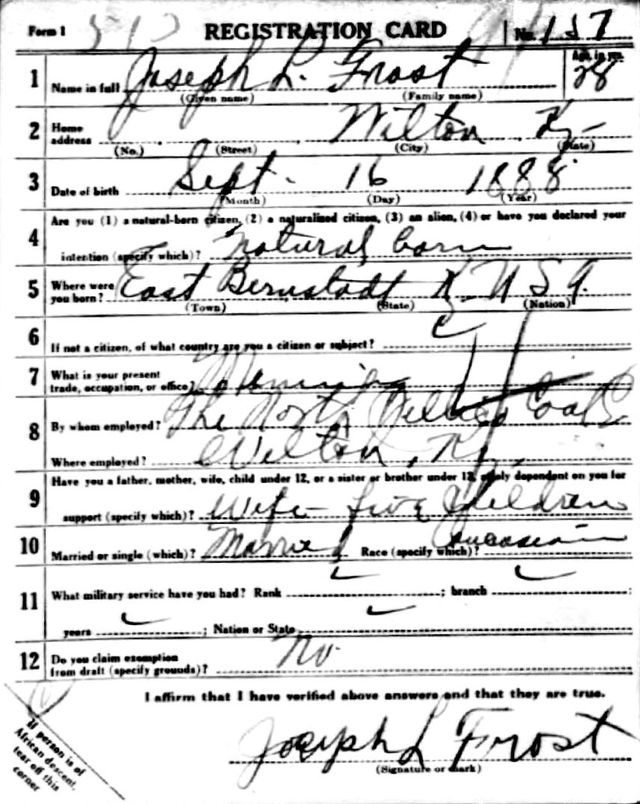 Form 1 REGISTRATION CARD No. 157
1 Name in full Joseph L. Frost Age, in yrs. 28
(Given name) (Family name)
2 Home address Wilton Ky-
(No.) (Street) (City) (State)
3 Date of birth Sept. 16 1888
(Month) (Day) (Year)
Are you (1) a natural-born citizen, (2) a naturalized citizen, (3) an alien, (4) or have you declared your
4 intention (specify which)? natural born
5 Where were you born? East Bernstadt K. U S A.
(Town) (State) (Nation)
6 If not a citizen, of what country are you a citizen or subject?
7 What is your present trade, occupation, or office?
8 By whom employed? The North Coal
Where employed? Wilton, Ky,
Have you a father, mother, wife, child under 12, or a sister or brother under 12, solely dependent on you for
9 support (specify which)? Wife - five Children
10 Married or single (which)? Married Race (specify which)? Caucasian
11 What military service have you had? Rank ; branch ;
years ; Nation or State
12 Do you claim exemption from draft (specify grounds)? No.
I affirm that I have verified above answers and that they are true.
Joseph L Frost
(Signature or mark)
If person is of
African descent,
tear off this
corner